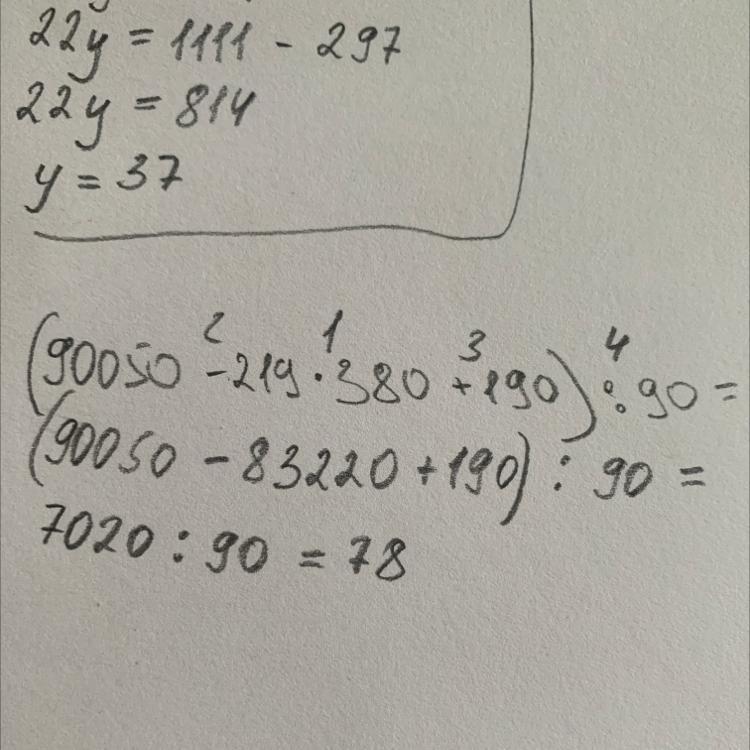 22y = 1111 - 297
22y = 814
y = 37
2 1 3 4
(90050 - 219 · 380 + 190) : 90 =
(90050 - 83220 + 190) : 90 =
7020 : 90 = 78